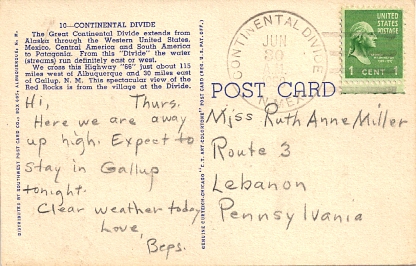 10—CONTINENTAL DIVIDE
The Great Continental Divide extends from
Alaska through the Western United States,
Mexico, Central America and South America
to Patagonia. From this "Divide" the water
(streams) run definitely east or west.
We cross this Highway "66" just about 115
miles west of Albuquerque and 30 miles east
of Gallup, N. M. This spectacular view of the
Red Rocks is from the village at the Divide.
Hi, Thurs.
Here we are away
up high. Expect to
stay in Gallup
tonight.
Clear weather today
Love,
Beps.
DISTRIBUTED BY SOUTHWEST POST CARD CO., BOX 685, ALBUQUERQUE, N. M.
GENUINE CURTEICH-CHICAGO "C.T. ART-COLORTONE" POST CARD (REG. U.S. PAT. OFF.)
CONTINENTAL DIVIDE
JUN
N. MEX.
UNITED
STATES
POSTAGE
1 CENT 1
POST CARD
Miss Ruth Anne Miller
Route 3
Lebanon
Pennsylvania